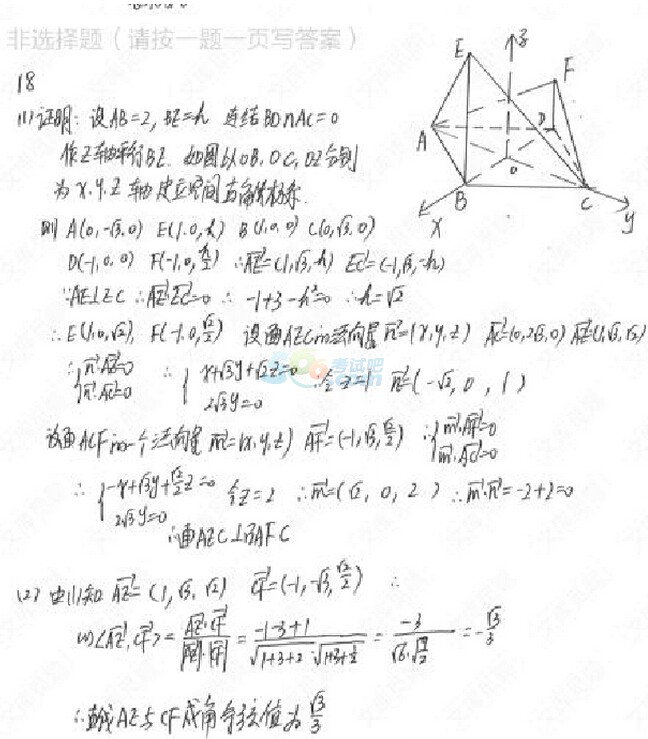 非选择题（请按一题一页写答案）
18
(1)证明：设AB=2，BE=h 连结BD∩AC=O
作Z轴平行BE．如图以OB，OC，OZ分别
为x.y.z轴建立空间直角坐标系．
则 A(0,-√3,0) E(1,0,h) B(1,0,0) C(0,√3,0)
D(-1,0,0) F(-1,0,h/2) ∴AE=(1,√3,h) EC=(-1,√3,-h)
∵AE⊥EC ∴AE·EC=0 ∴ -1+3-h²=0 ∴h=√2
∴E(1,0,√2)，F(-1,0,√2/2) 设面AEC的法向量n=(x,y,z) AC=(0,2√3,0) AE=(1,√3,√2)
∴{n·AE=0 ∴ {x+√3y+√2z=0 ∴令z=1 n=(-√2,0,1)
n·AC=0 2√3y=0
设面ACF的一个法向量m=(x,y,z) AF=(-1,√3,√2/2) ∴{m·AF=0
m·AC=0
∴ {-x+√3y+√2/2z=0 令z=2 ∴m=(√2,0,2) ∴m·n=-2+2=0
2√3y=0
∴面AEC⊥面AFC
(2) 由(1)知 AE=(1,√3,√2) CF=(-1,-√3,√2/2) ∴
cos<AE,CF>=AE·CF/|AE|·|CF|=-1-3+1/√1+3+2·√1+3+1/2=-3/√6·√9/2=-√3/3
∴直线AE与CF成角余弦值为√3/3
E
z
F
A
D
O
B
C
x
y
考试吧